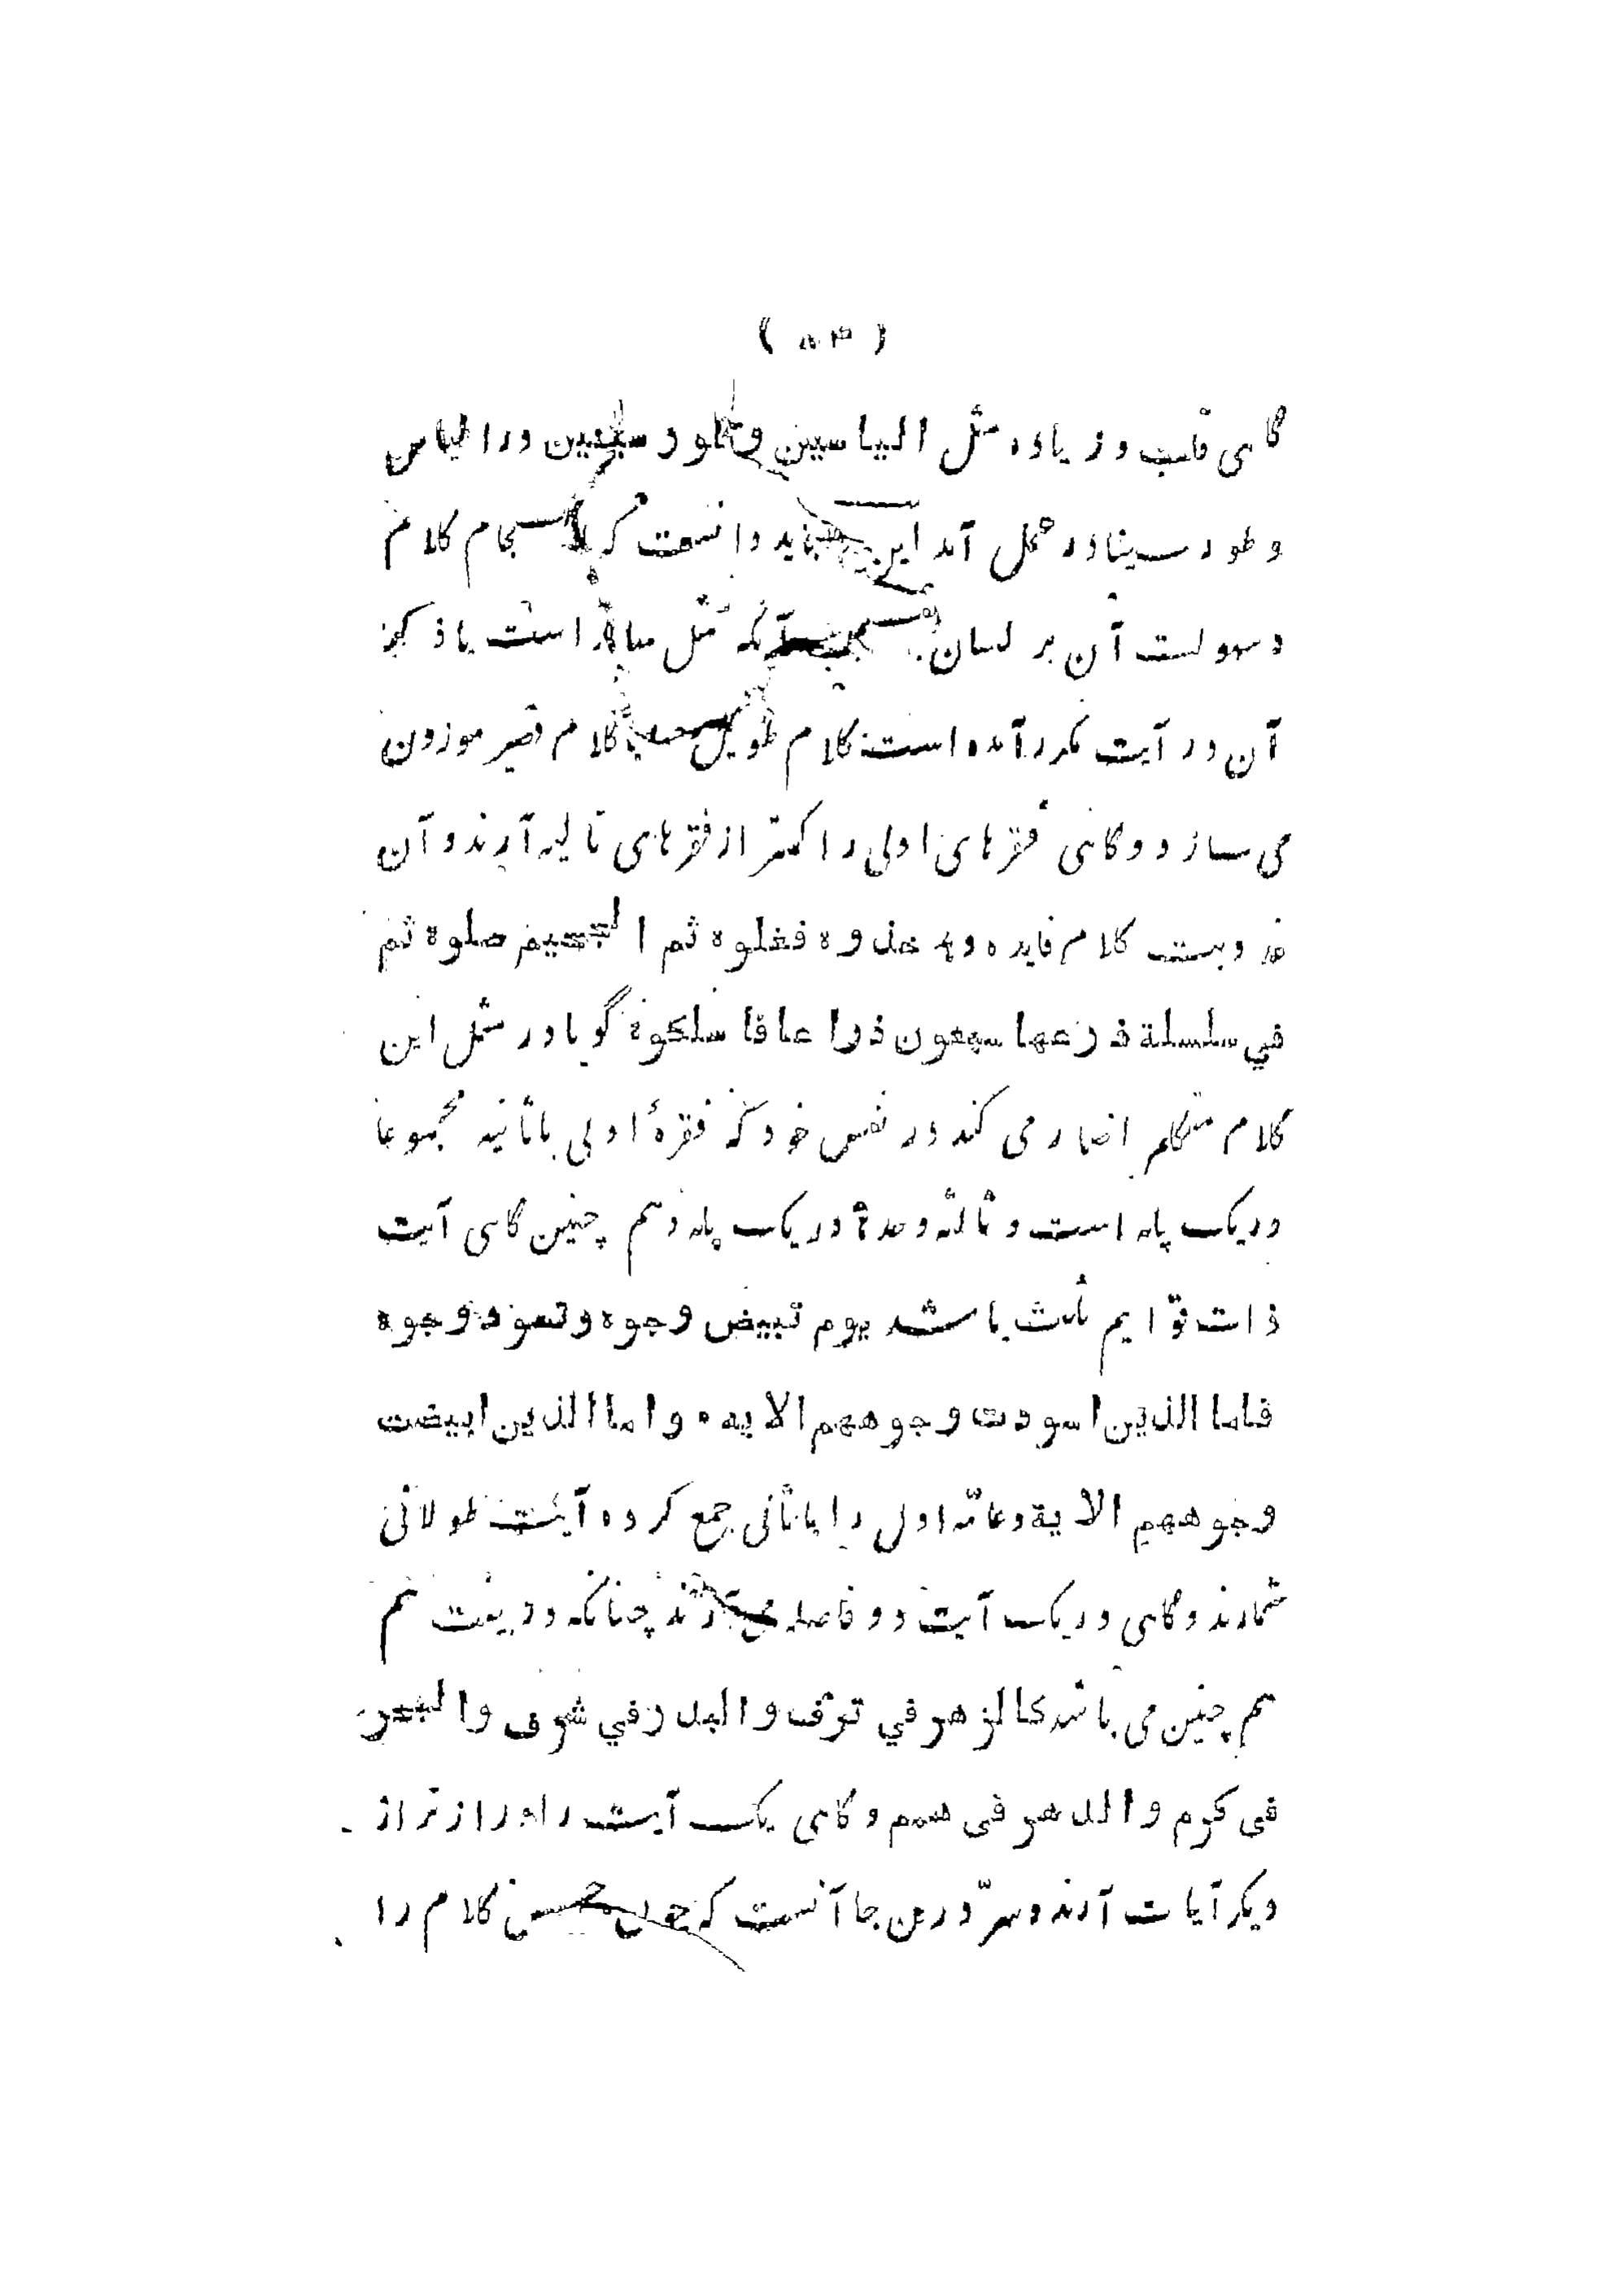 ( ۸۳ )
گاهی قلب و زیاده مثل الیاسین و طور سینین در الیاس
و طور سینا در محل آمد این باید دانست که انسجام کلام
و سهولت آن بر لسان آنکه مثل سایر است یا ذکر
آن در آیت مکرر آمده است کلام طویل کلام قصیر موزون
می سازد و گاهی فقرهای اولی را کمتر از فقرهای تالیه آرند و آن
عذوبت کلام فایده دهد خذوه فغلوه ثم الجحیم صلوه ثم
في سلسلة ذرعها سبعون ذراعا فاسلکوه گویا در مثل این
کلام متکلم اضمار می کند در نفس خود که فقرهٔ اولی با ثانیه مجموعا
در یک پله است و ثالثه وحدهٔ در یک پله و هم چنین گاهی آیت
ذات قوایم ثلث باشد یوم تبیض وجوه وتسود وجوه
فاما الذین اسودت وجوههم الایه ه واما الذین ابیضت
وجوههم الایة و عامه اول را با ثانی جمع کرده آیت طولانی
شمارند و گاهی در یک آیت دو فاصله می آرند چنانکه در بیت هم
هم چنین می باشد کالزهر في ترف والبدر في شرف والبحر
فی کرم والدهر فی همم و گاهی یک آیت را دراز تر از
دیگر آیات آرند و سرّ درین جا آنست که چون حسن کلام را